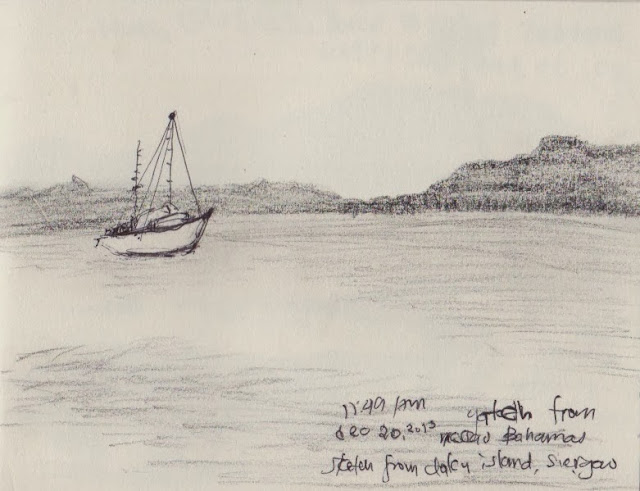 11:49 pm
dec 20, 2013 yatch from
nassau Bahamas
sketch from daku island, siargao